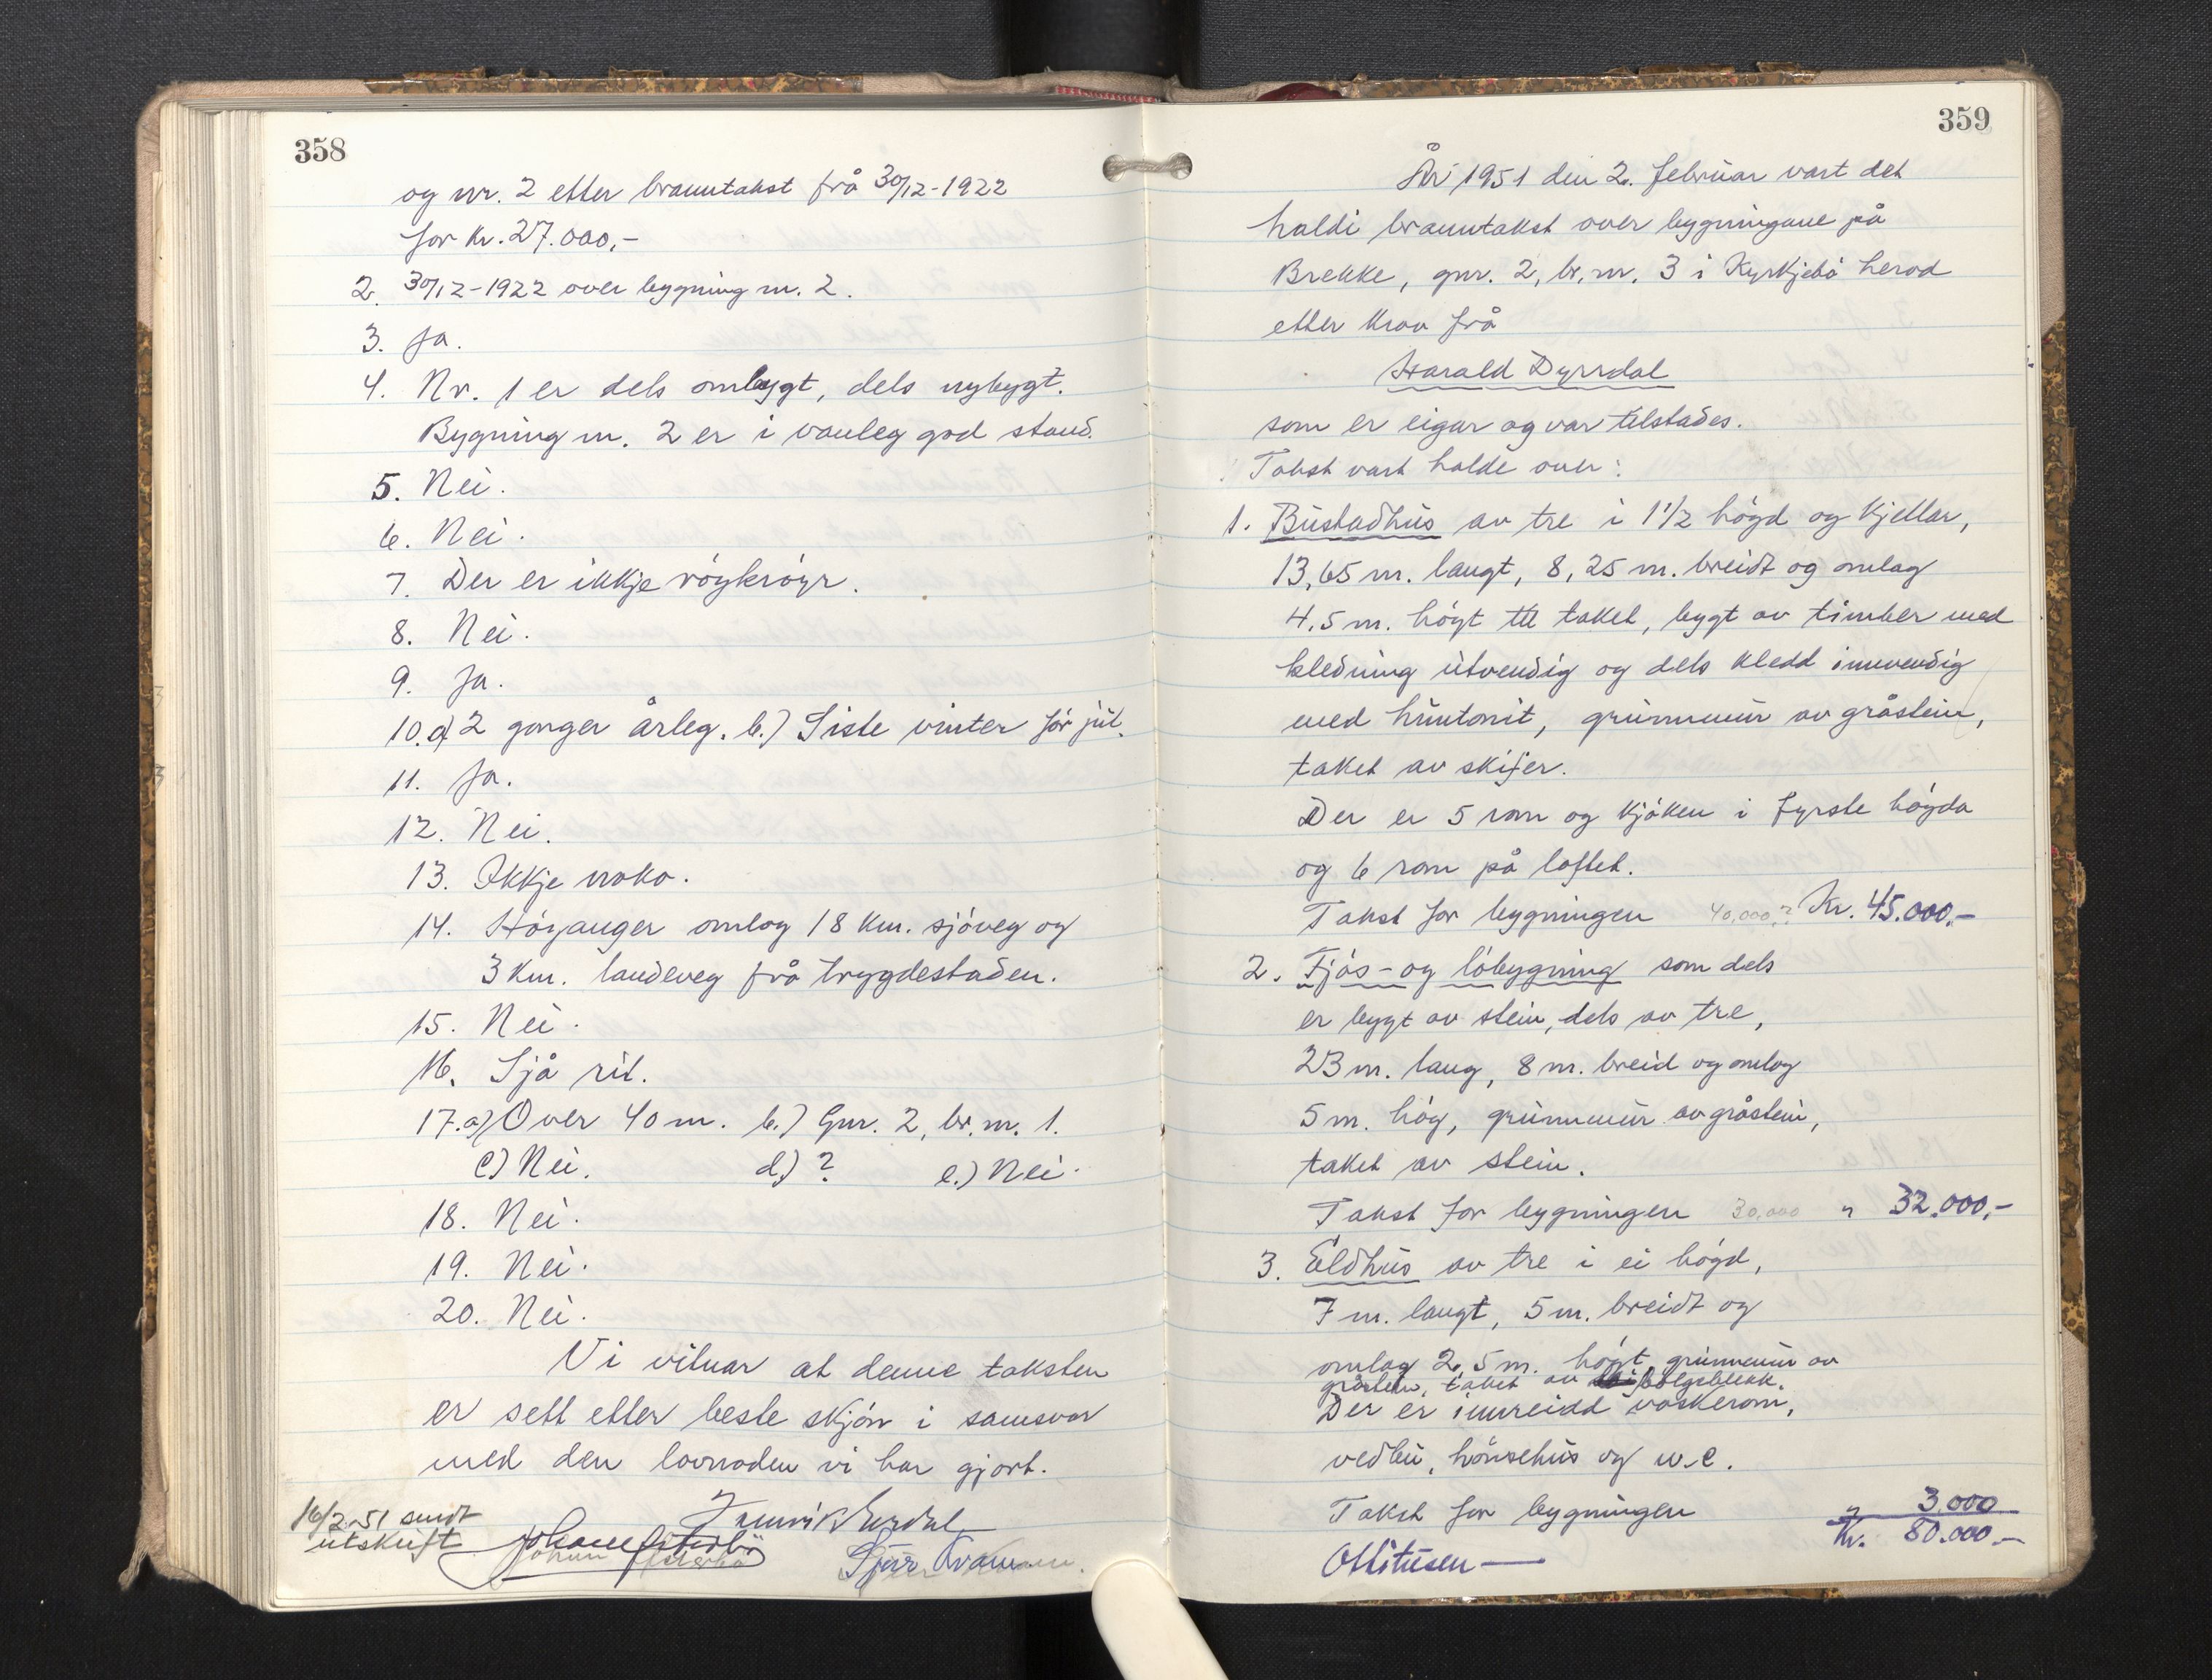 358
og nr. 2 etter branntakst frå 30/12-1922
for kr. 27.000,-
2. 30/12-1922 over bygning nr. 2.
3. Ja.
4. Nr. 1 er dels ombygt, dels nybygt.
Bygning nr. 2 er i vanleg god stand.
5. Nei.
6. Nei.
7. Der er ikkje röykröyr.
8. Nei.
9. Ja.
10.a) 2 gonger årleg. b.) Siste vinter för jul.
11. Ja.
12. Nei.
13. Ikkje noko.
14. Höyanger omlag 18 km. sjöveg og
3 km. landeveg frå trygdestaden.
15. Nei.
16. Sjå rit.
17.a) Over 40 m. b.) Gnr. 2, br. nr. 1.
c) Nei. d.) ? e.) Nei.
18. Nei.
19. Nei.
20. Nei.
Vi vitnar at denne taksten
er sett etter beste skjön i samsvar
med den lovnaden vi har gjort.
16/2-51 sendt
utskrift
359
År 1951 den 2. februar vart det
haldi branntakst over bygningane på
Brekke, gnr. 2, br. nr. 3 i Kyrkjebö herad
etter krav frå
Harald Dyrrdal
som er eigar og var tilstades.
Takst vart halde over:
1. Bustadhus av tre i 1 1/2 högd og kjellar,
13,65 m. langt, 8,25 m. breidt og omlag
4.5 m. högt til taket, bygt av timber med
kledning utvendig og dels kledd innvendig
med huntonit, grunnmur av gråstein,
taket av skifer.
Der er 5 rom og kjöken i fyrste högda
og 6 rom på loftet.
Takst for bygningen 40,000,? Kr. 45.000,-
2. Fjös- og löbygning som dels
er bygt av stein, dels av tre,
23 m. lang, 8 m. breid og omlag
5 m. hög, grunnmur av gråstein,
taket av stein.
Takst for bygningen 30,000 " 32.000,-
3. Eldhus av tre i ei högd,
7 m. langt, 5 m. breidt og
omlag 2,5 m. högt, grunnmur av
gråstein, taket av bölgeblekk.
Der er innreidd vaskerom,
vedbu, hönsehus og w.c.
Takst for bygningen " 3.000
Kr. 80.000.-